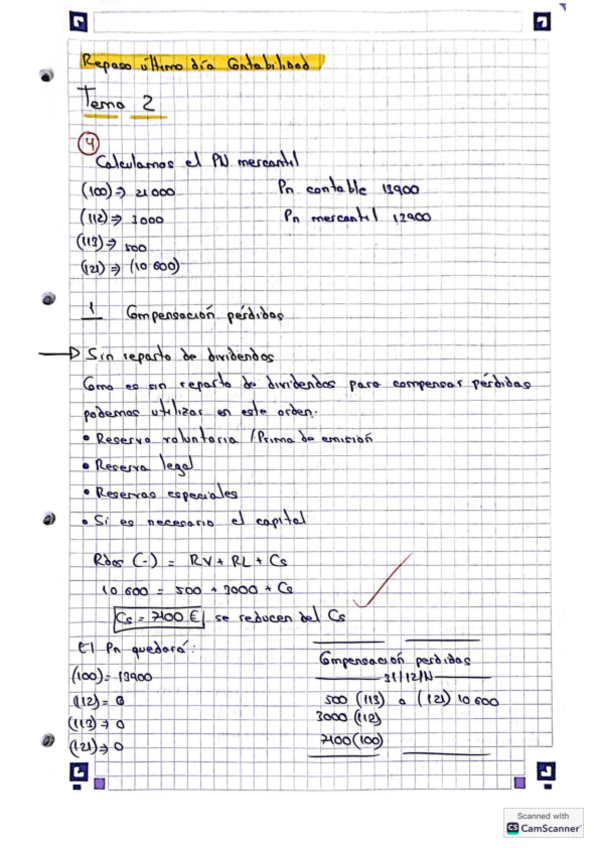 Repaso último día Contabilidad
Tema 2
4
Calculamos el PN mercantil
(100) ⇒ 21000 Pn contable 13900
(112) ⇒ 3000 Pn mercantil 12900
(113) ⇒ 500
(121) ⇒ (10 600)
1 Compensación pérdidas
→ Sin reparto de dividendos
Como es sin reparto de dividendos para compensar pérdidas
podemos utilizar en este orden.
• Reserva voluntaria / Prima de emisión
• Reserva legal
• Reservas especiales
• Si es necesario el capital
Rdos (-) = RV + RL + Cs
10 600 = 500 + 3000 + Cs
Cs = 7100 € se reducen del Cs
El Pn quedará:
(100) = 13900
(112) = 0
(113) ⇒ 0
(121) ⇒ 0
Compensación perdidas
31/12/N
500 (113) a (121) 10 600
3000 (112)
7100 (100)
Scanned with
CS CamScanner